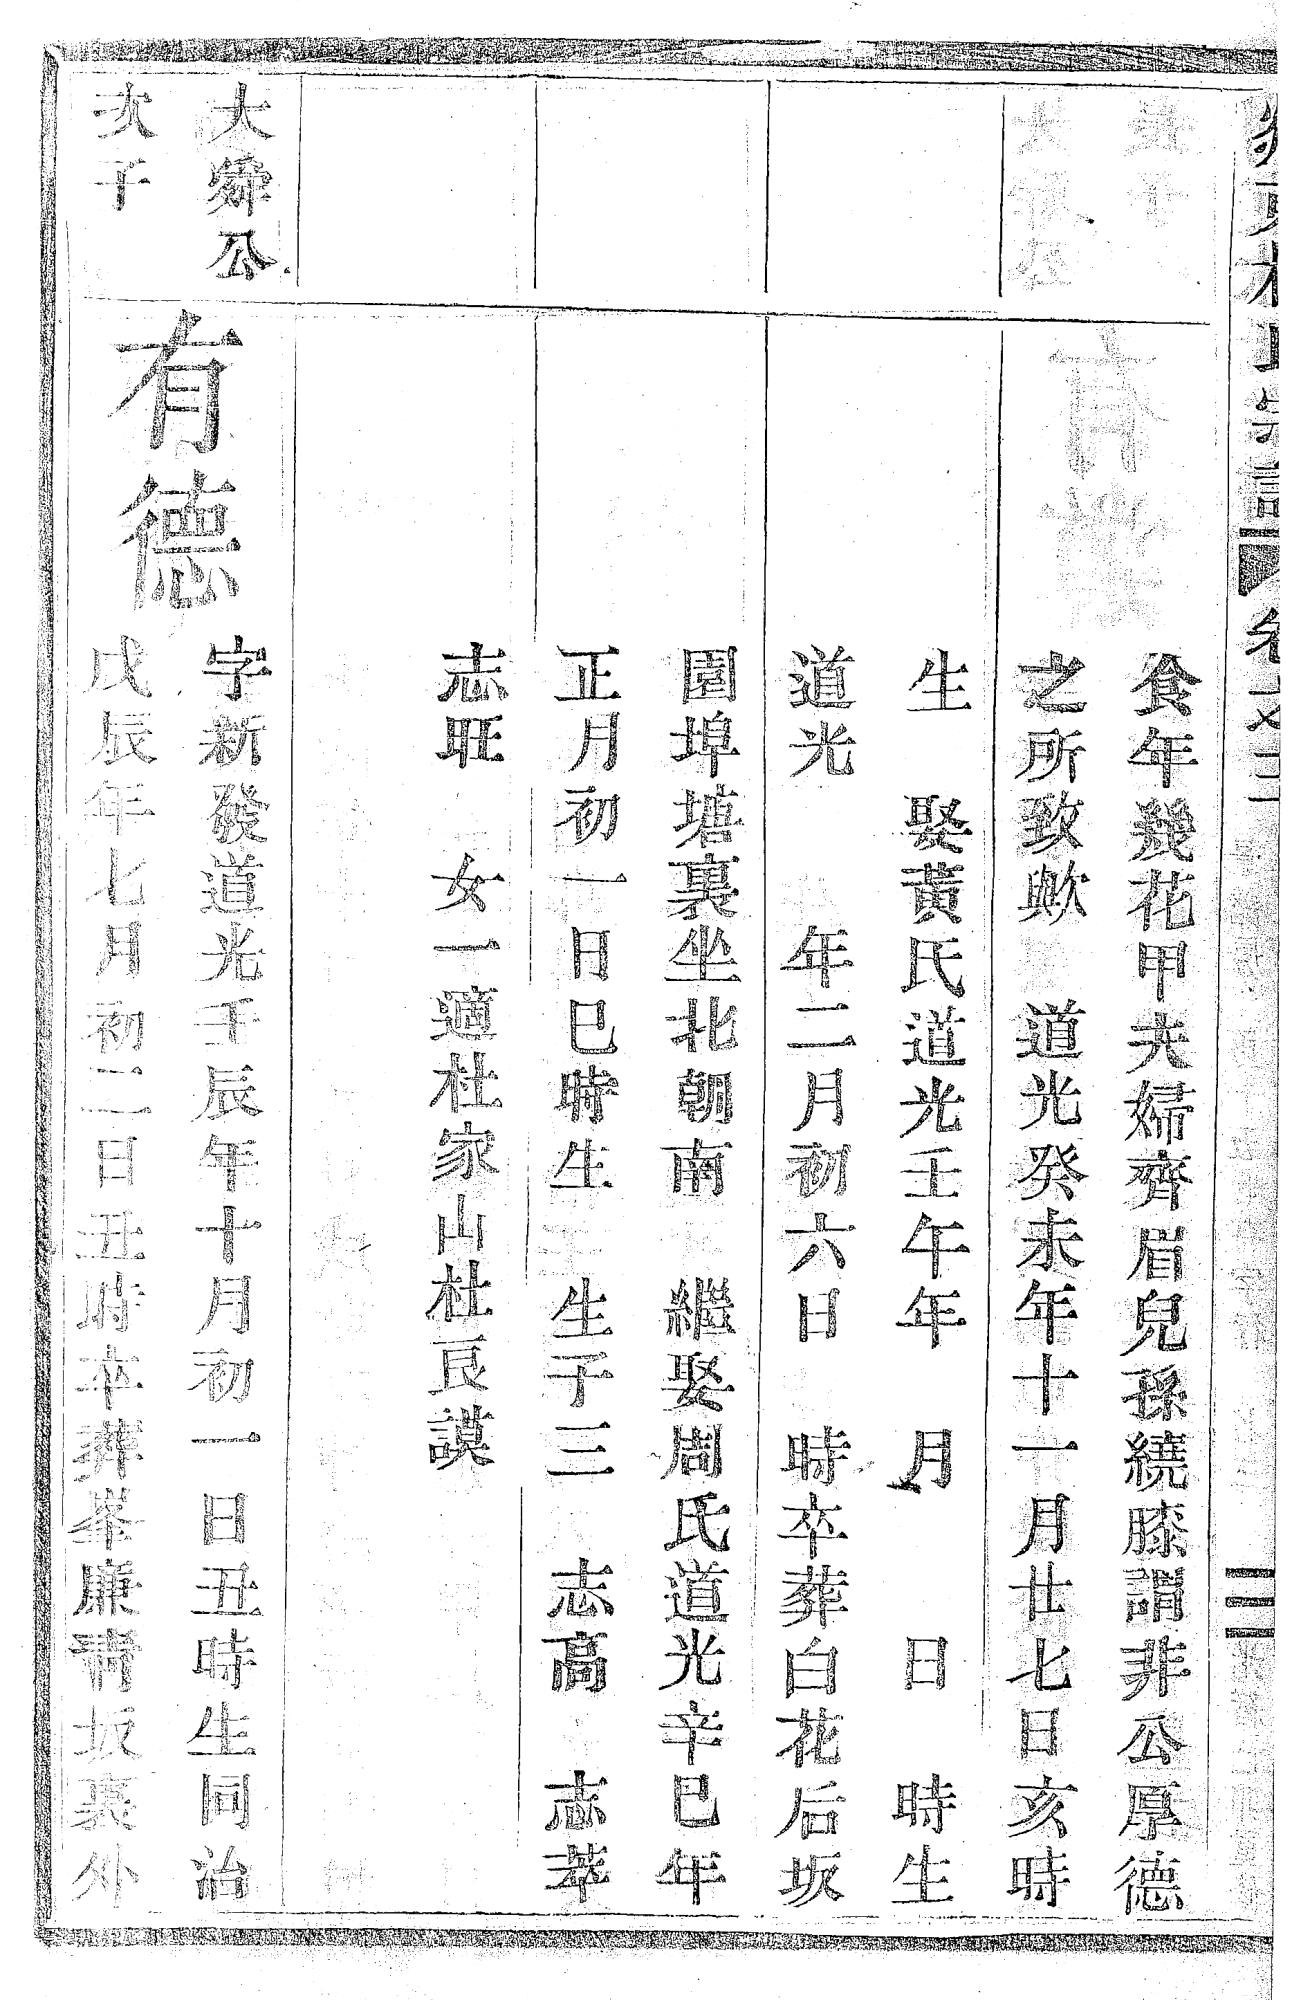 食年幾花甲夫婦齊眉兒孫繞膝謂非公厚德
之所致歟 道光癸未年十一月廿七日亥時
生 娶黃氏道光壬午年 月 日 時生
道光 年二月初六日 時卒葬白花后坂
園埠塘裏坐北朝南 繼娶周氏道光辛巳年
正月初一日巳時生 生子三 志高 志萃
志旺 女一適杜家山杜良謨
大舜公
次子
有德
字新發道光壬辰年十月初一日丑時生同治
戊辰年七月初二日丑時卒葬峯廉 坂裏外